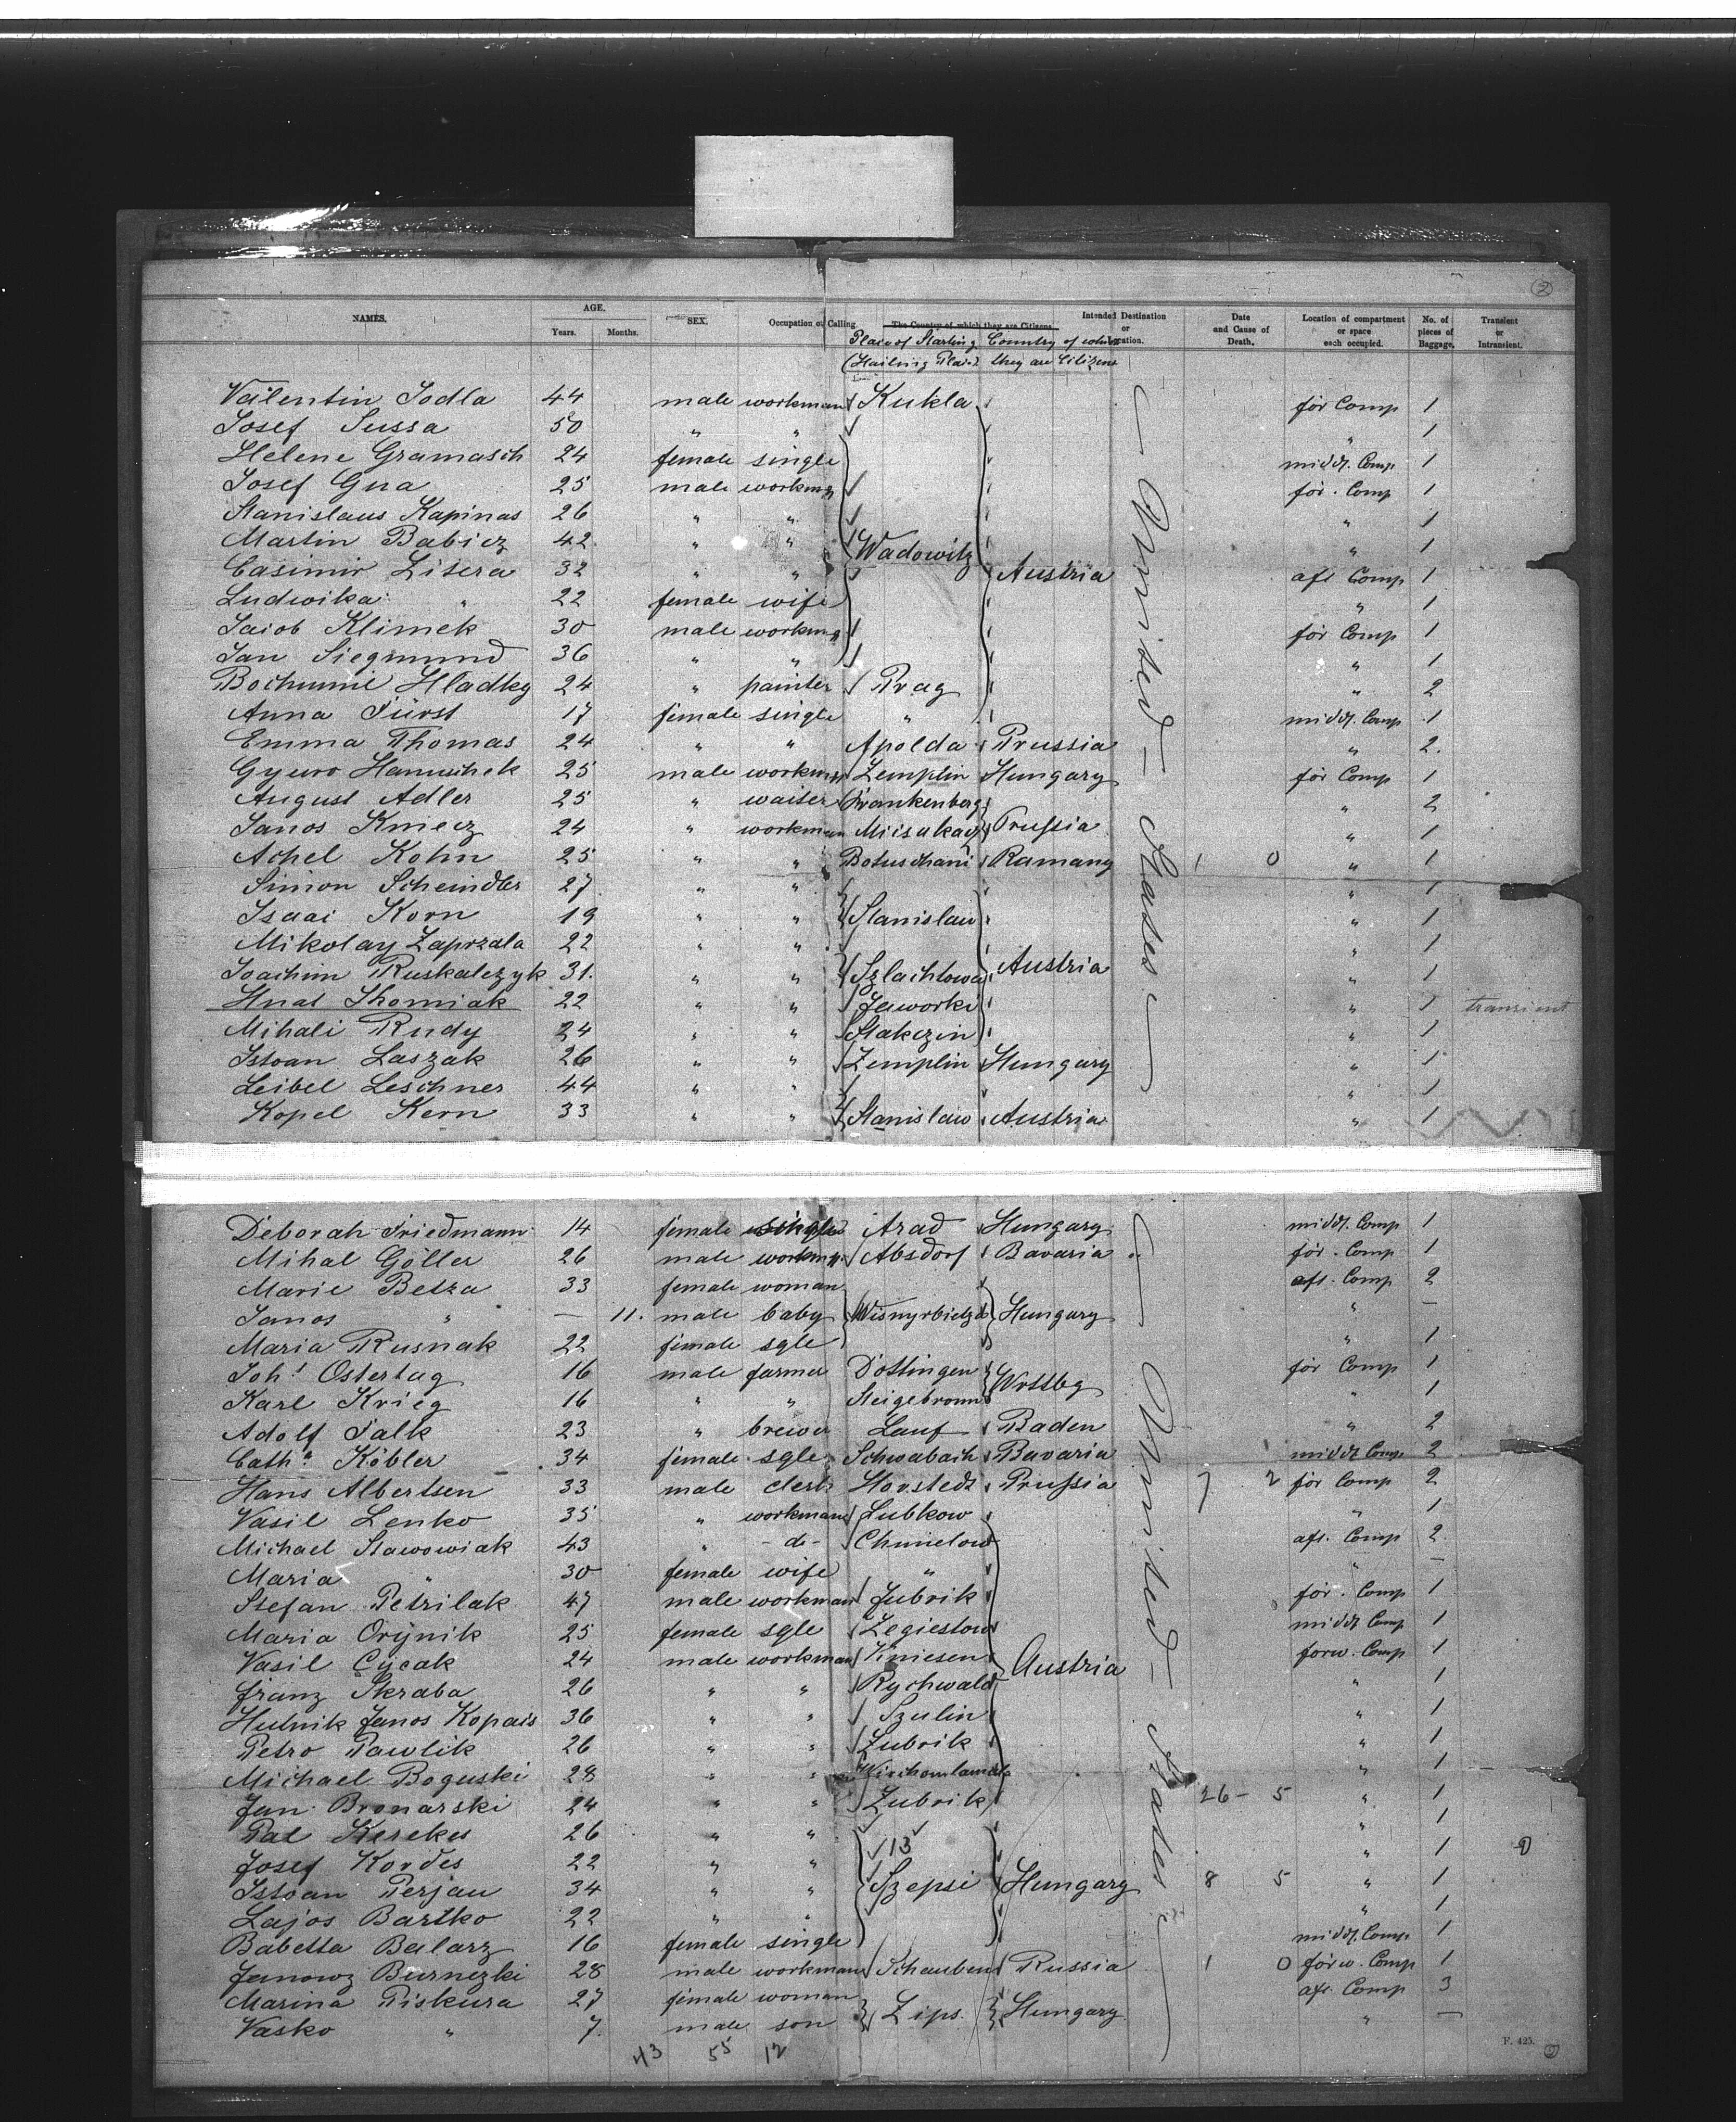 2
NAMES. AGE. SEX. Occupation or Calling. The Country of which they are Citizens. Intended Destination or Location. Date and Cause of Death. Location of compartment or space each occupied. No. of pieces of Baggage. Transient or Intransient.
Years. Months.
Place of Starting Country of which
(Hailing Place) they are Citizens
Valentin Jodla 44 male workman Kukla for Comp 1
Josef Sussa 50 " " " 1
Helene Gramasch 24 female single middl. Comp 1
Josef Gna 25 male workman for. Comp 1
Stanislaus Kapinas 26 " " " 1
Martin Babicz 42 " " Wadowitz " 1
Casimir Lisera 32 " " Austria aft Comp 1
Ludwika " 22 female wife " 1
Jaiob Klimek 30 male workman for Comp 1
Jan Siegmund 36 " " " 1
Bochumil Hladky 24 " painter Prag " 2
Anna Fürst 17 female single " middl. Comp 1
Emma Thomas 24 " " Apolda Prussia " 2.
Gyuro Hanuschek 25 male workman Zemplin Hungary for Comp 1
August Adler 25 " waiter Frankenberg " 2
Janos Kmecz 24 " workman Prussia " 1
Achel Kohn 25 " " Botuschani Rumany 1 0 " 1
Simon Scheindler 27 " " " 1
Isaai Korn 19 " " Stanislau " 1
Mikolay Zaprzala 22 " " " 1
Joachim Ruskalczyk 31. " " Szlachtowa Austria " 1
Hnat Thomiak 22 " " Jaworki " 1 transient
Mihali Rudy 24 " " Stakczin " 1
Istvan Laszak 26 " " Zemplin Hungary " 1
Leibel Leschner 44 " " " 1
Kopel Kern 33 " " Stanislaw Austria " 1
United States
Deborah Friedmann 14 female single Arad Hungary middl. Comp 1
Mihal Göller 26 male workman Absdorf Bavaria for. Comp 1
Marie Betza 33 female woman aft. Comp 2
Janos " — 11. male baby Hungary " —
Maria Rusnak 22 female sgle " 1
Joh! Ostertag 16 male farmer Dottingen Wrttbg for Comp 1
Karl Krieg 16 " " Steigebronn " 1
Adolf Falk 23 " brewer Lauf Baden " 2
Catha Köbler 34 female sgle Schwabach Bavaria middl Comp 2
Hans Albertsen 33 male clerk Horstedt Prussia 7 2 for Comp 2
Vasil Lenko 35 " workman Lubkow " 1
Michael Stawowiak 43 " - do - Chmielow aft. Comp 2
Maria " 30 female wife " " —
Stefan Petrilak 47 male workman Jubrik for. Comp 1
Maria Orijnik 25 female sgle Zegiestow middl Comp 1
Vasil Cycak 24 male workman Kniesen Austria forw. Comp 1
Franz Skraba 26 " " Rychwald " 1
Hutnik Janos Kopais 36 " " Szulin " 1
Petro Pawlik 26 " " Zubrik " 1
Michael Boguski 28 " " " 1
Jan Bronarski 24 " " Zubrik 26 - 5 " 1
Pal Kerekes 26 " " 13 " 1
Josef Kordes 22 " " " 1
Istvan Perjau 34 " " Szepsi Hungary 8 5 " 1
Lajos Bartko 22 " " " 1
Babetta Balarz 16 female single middl. Comp. 1
Janowz Burnezki 28 male workman Schauben Russia 1 0 forw. Comp 1
Marina Piskura 27 female woman Zips. Hungary aft. Comp 3
Vasko " 7. male son " —
United States
43 55 12
F. 425.